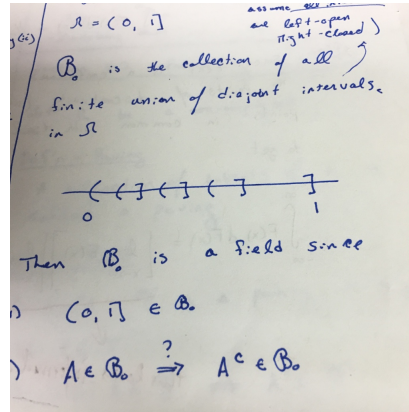 Ω = (0, 1]
assume
are left-open
right-closed)
(ii)
B₀ is the collection of all
finite union of disjoint intervals
in Ω
0 1
Then B₀ is a field since
) (0, 1] ∈ B₀
) A ∈ B₀ ?⇒ Aᶜ ∈ B₀